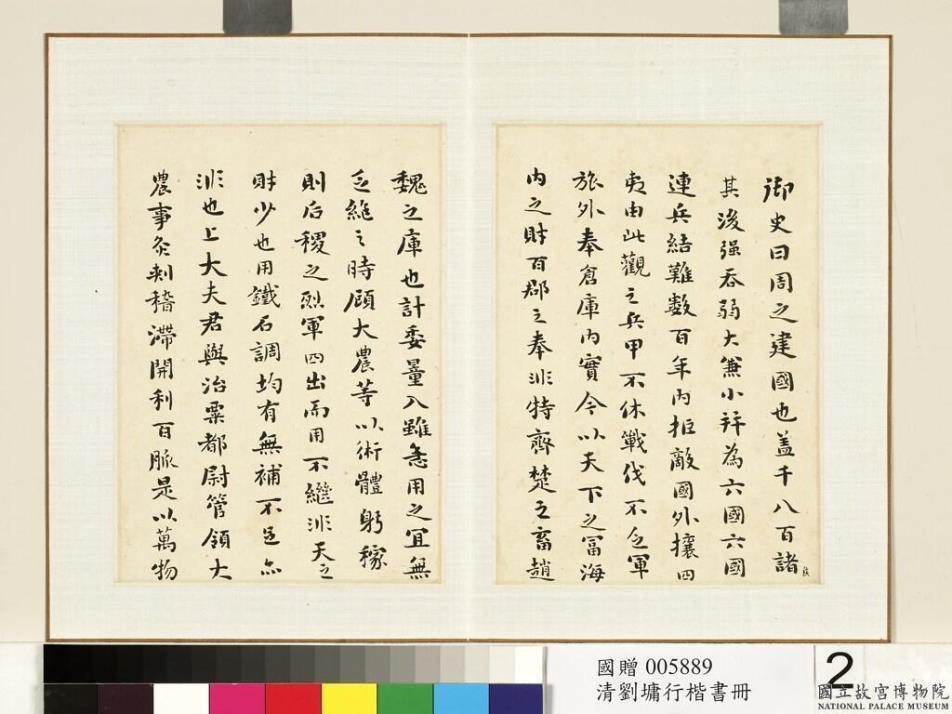 御史曰周之建國也盖千八百諸侯
其後强吞弱大兼小并為六國六國
連兵結難数百年内拒敵國外攘四
夷由此觀之兵甲不休戰伐不乏軍
旅外奉倉庫内實今以天下之冨海
内之財百郡之奉非特齊楚之畜趙
魏之庫也計委量入雖急用之宜無
乏絶之時顧大農等以術體躬稼
則后稷之烈軍四出而用不繼非天之
財少也用鐵石調均有無補不足亦
非也上大夫君與治粟都尉管領大
農事灸刺稽滯開利百脈是以萬物
國贈 005889
清劉墉行楷書冊
2
國立故宮博物院
NATIONAL PALACE MUSEUM